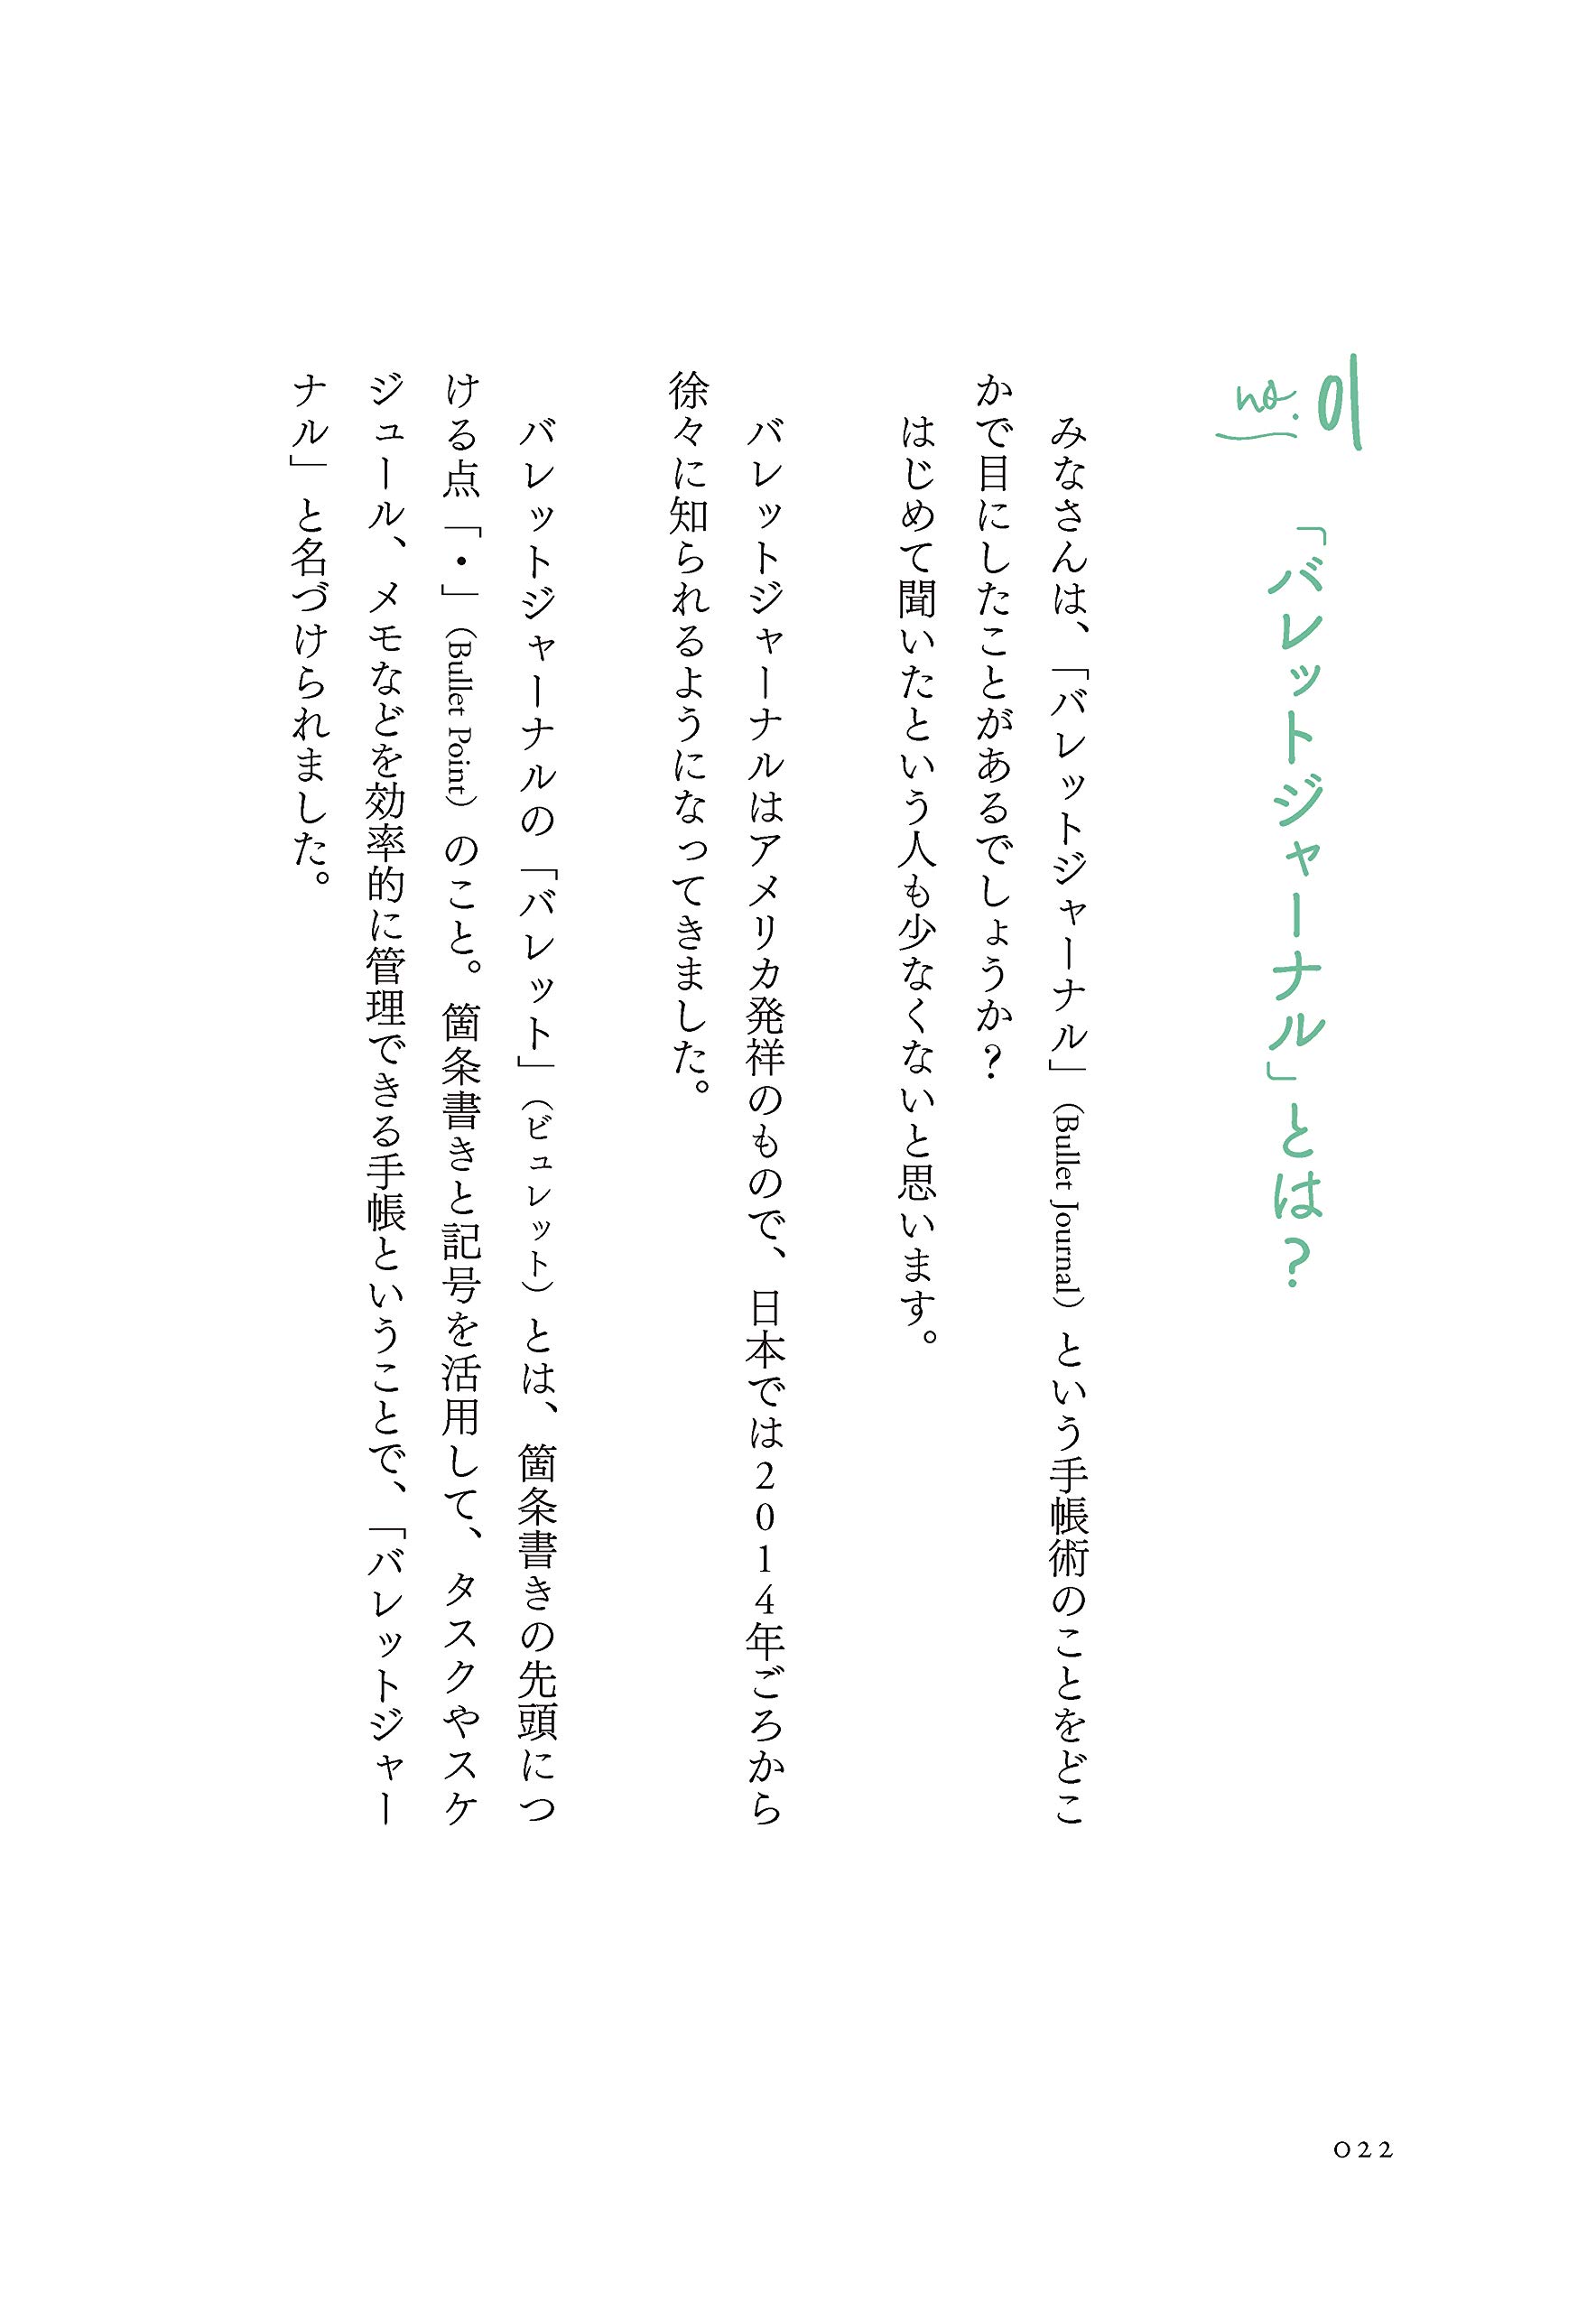 no. 01
「バレットジャーナル」とは？
みなさんは、「バレットジャーナル」(Bullet Journal) という手帳術のことをどこ
かで目にしたことがあるでしょうか？
はじめて聞いたという人も少なくないと思います。
バレットジャーナルはアメリカ発祥のもので、日本では2014年ごろから
徐々に知られるようになってきました。
バレットジャーナルの「バレット」（ビュレット）とは、箇条書きの先頭につ
ける点「・」(Bullet Point) のこと。箇条書きと記号を活用して、タスクやスケ
ジュール、メモなどを効率的に管理できる手帳ということで、「バレットジャー
ナル」と名づけられました。
022